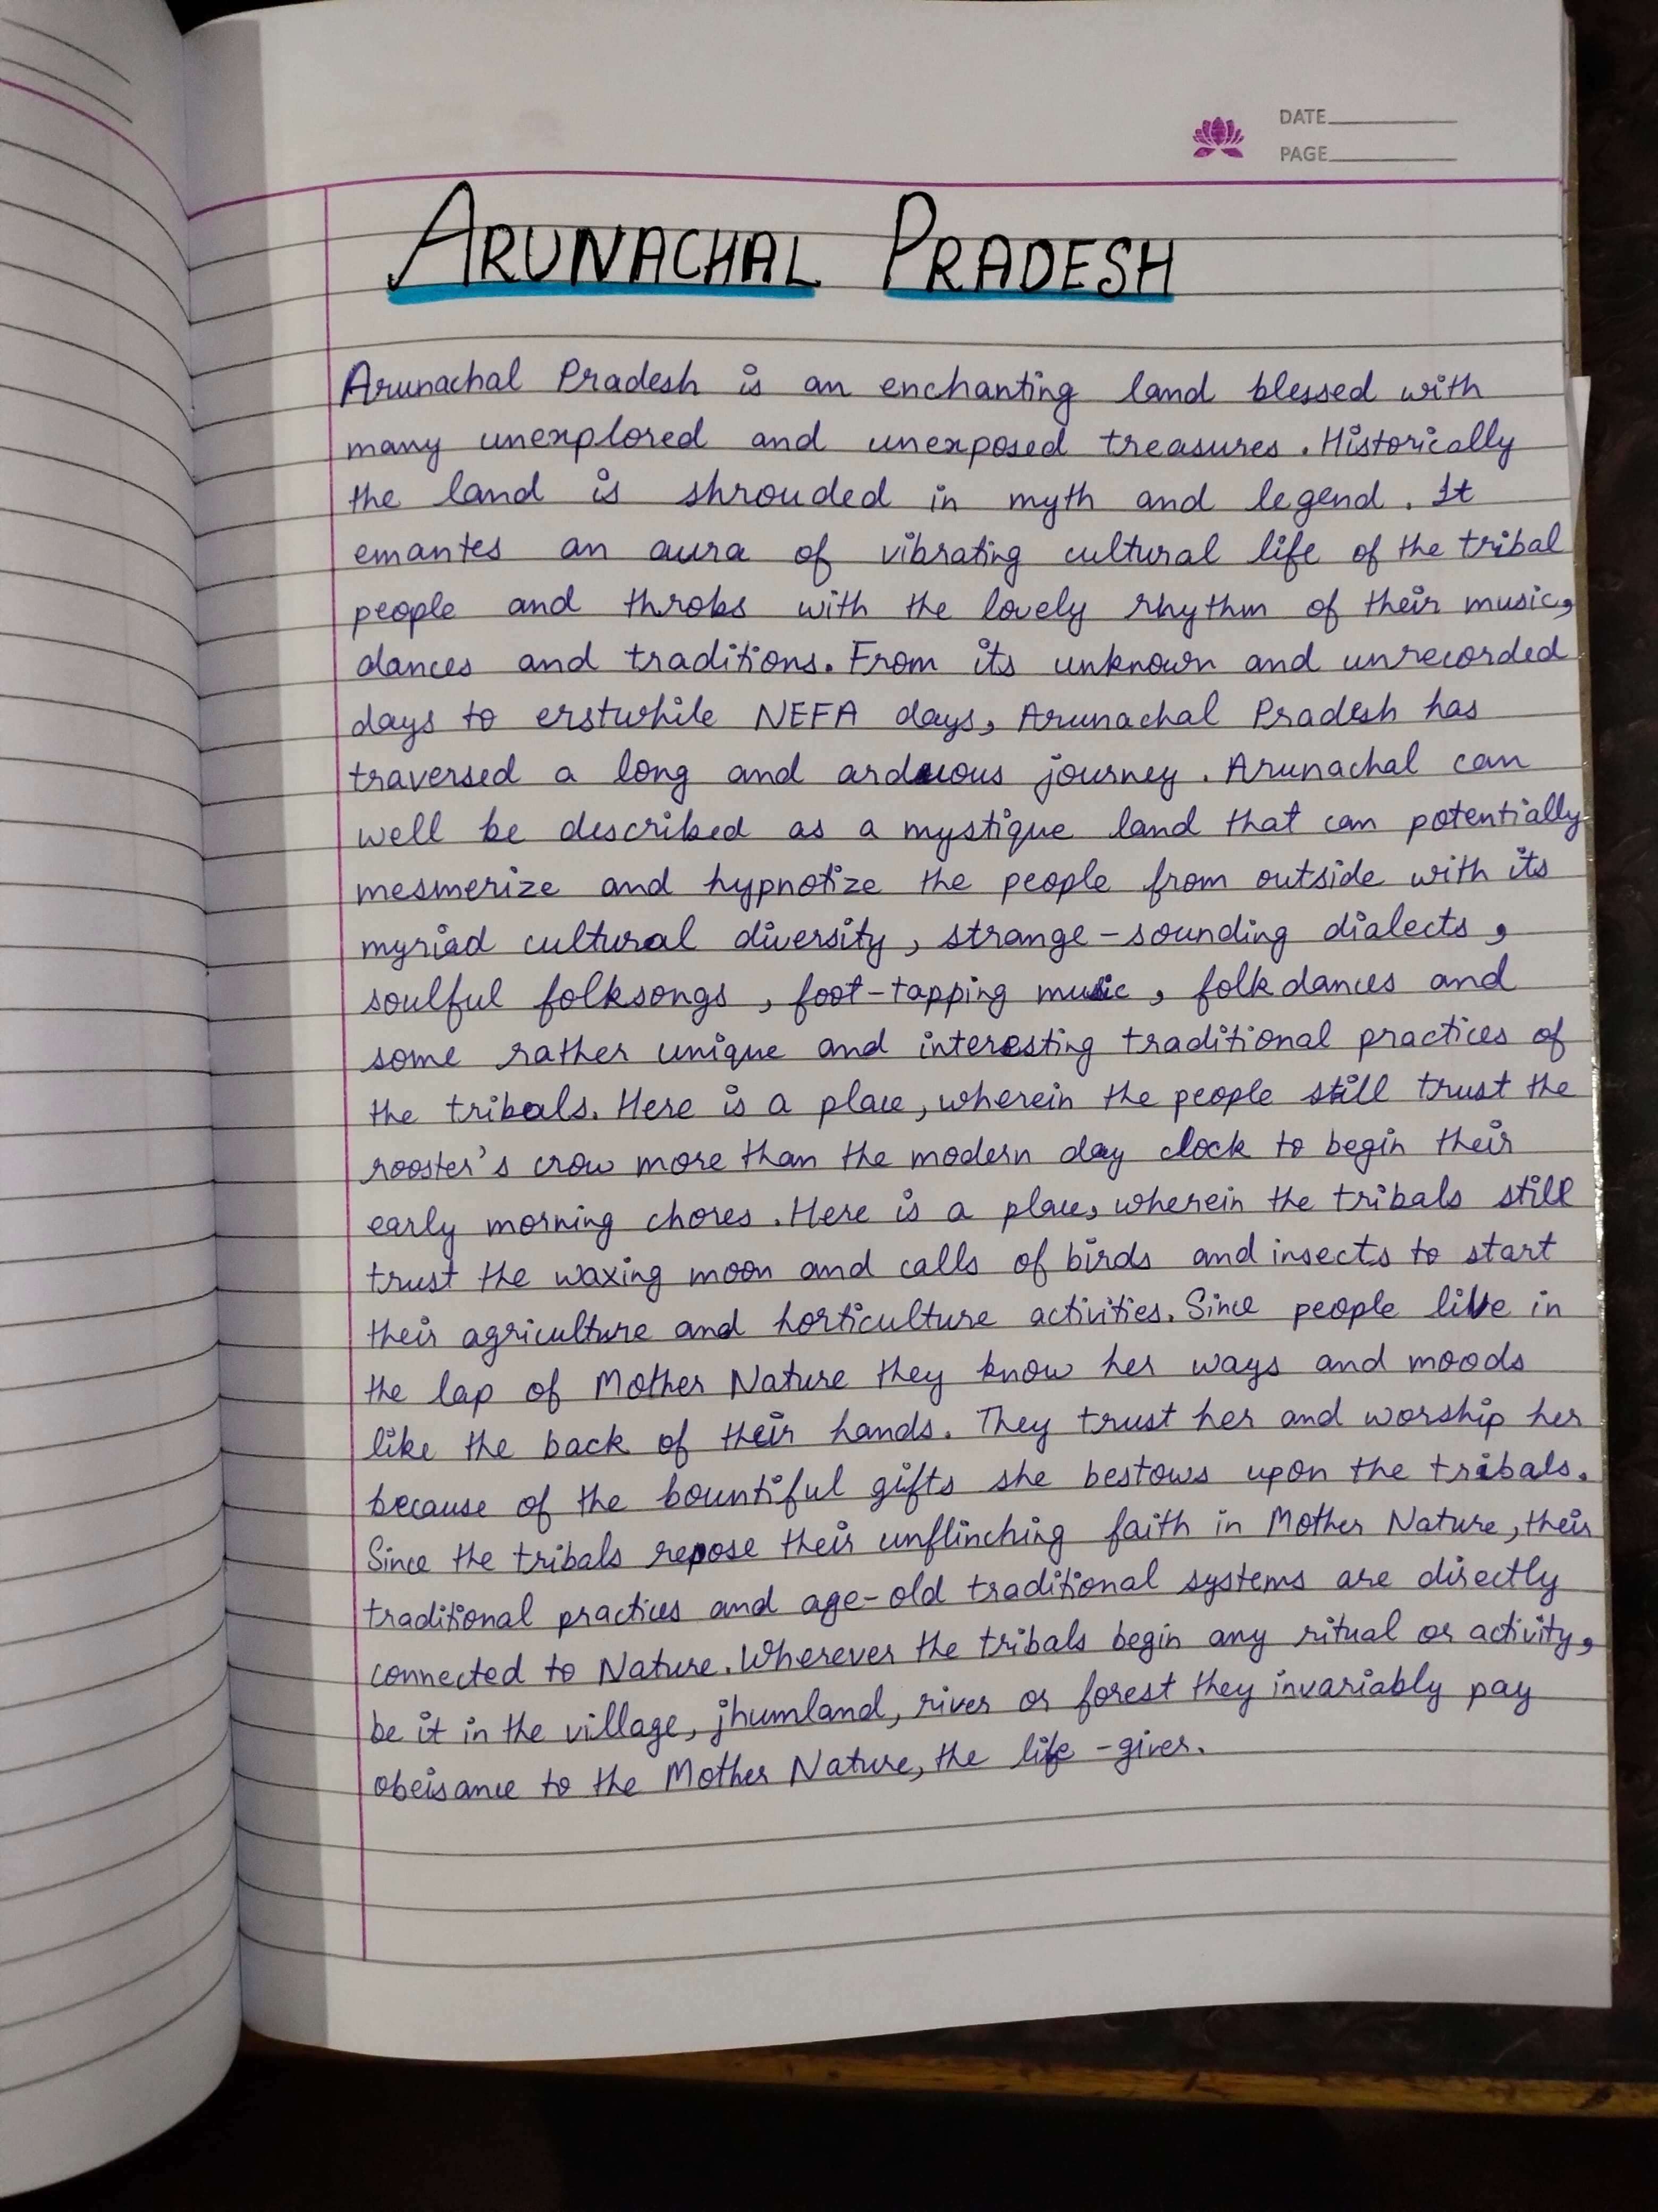 DATE
PAGE
ARUNACHAL PRADESH
Arunachal Pradesh is an enchanting land blessed with
many unexplored and unexposed treasures. Historically
the land is shrouded in myth and legend. It
emantes an aura of vibrating cultural life of the tribal
people and throbs with the lovely rhythm of their music,
dances and traditions. From its unknown and unrecorded
days to erstwhile NEFA days, Arunachal Pradesh has
traversed a long and arduous journey. Arunachal can
well be described as a mystique land that can potentially
mesmerize and hypnotize the people from outside with its
myriad cultural diversity, strange-sounding dialects,
soulful folksongs, foot-tapping music, folk dances and
some rather unique and interesting traditional practices of
the tribals. Here is a place, wherein the people still trust the
rooster's crow more than the modern day clock to begin their
early morning chores. Here is a place, wherein the tribals still
trust the waxing moon and calls of birds and insects to start
their agriculture and horticulture activities. Since people live in
the lap of Mother Nature they know her ways and moods
like the back of their hands. They trust her and worship her
because of the bountiful gifts she bestows upon the tribals.
Since the tribals repose their unflinching faith in Mother Nature, their
traditional practices and age-old traditional systems are directly
connected to Nature. Wherever the tribals begin any ritual or activity,
be it in the village, jhumland, river or forest they invariably pay
obeisance to the Mother Nature, the life-giver.